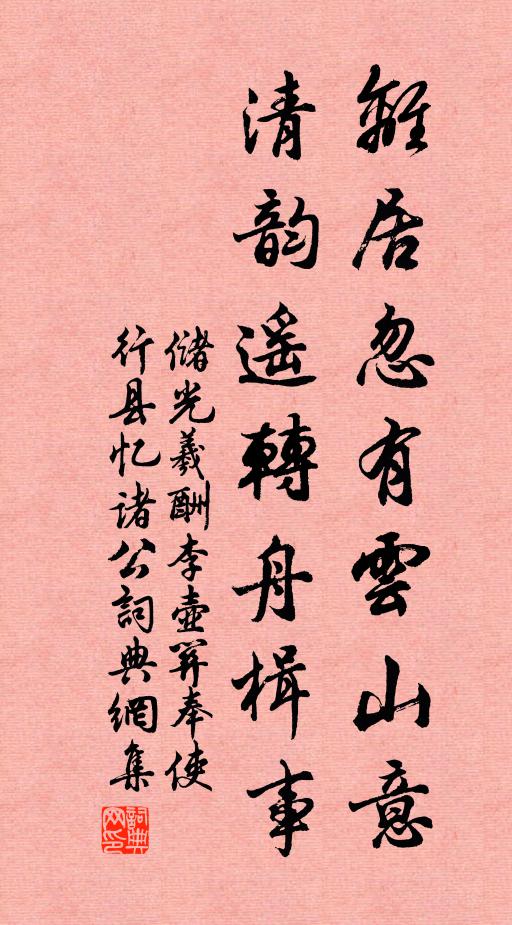 離居忽有雲山意
清韵遥轉舟楫事
儲光羲酬李壺関奉使
行县忆诸公詞典網集
詞典网印